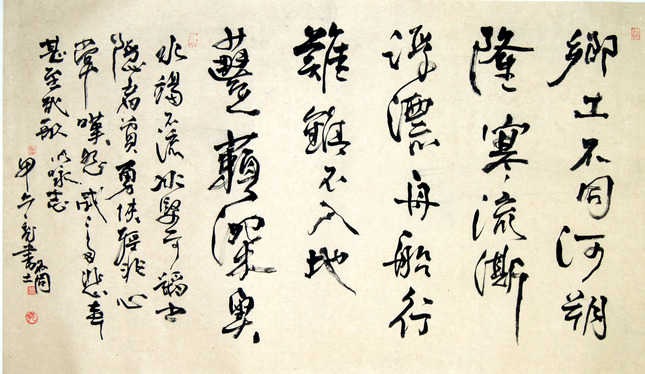 鄉土不同河朔
隆寒流澌
浮漂舟船行
難錐不入地
蘴藾深奥
水竭不流冰堅可蹈士
隱者貧勇俠輕非心
常嘆怨戚々多悲幸
甚至哉歌以詠志
甲午書